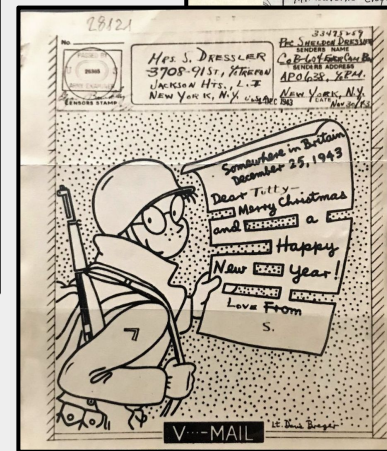 28121
No.
CENSORS STAMP
MRS. S. DRESSLER
3708-91ST.
JACKSON HTS. L.I.
NEW YORK, N.Y.
PFC SHELDON DRESSLER
SENDERS NAME
SENDERS ADDRESS
APO 638, % P.M.
NEW YORK, N.Y.
DATE
Nov 30/43
Somewhere in Britain
December 25, 1943
Dear Tutty—
Merry Christmas
and a
Happy
New Year!
Love From
S.
V···-MAIL